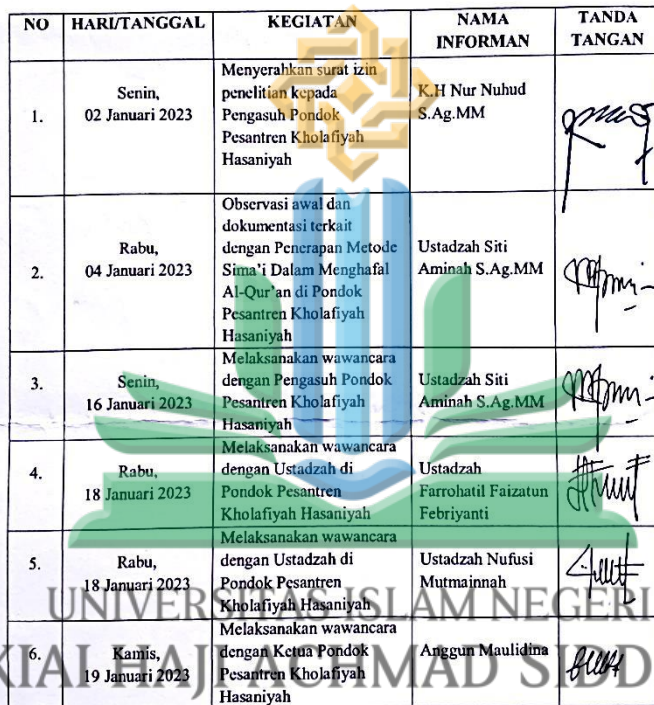 NO HARI/TANGGAL KEGIATAN NAMA INFORMAN TANDA TANGAN
1.
Senin,
02 Januari 2023
Menyerahkan surat izin
penelitian kepada
Pengasuh Pondok
Pesantren Kholafiyah
Hasaniyah
K.H Nur Nuhud
S.Ag.MM
2.
Rabu,
04 Januari 2023
Observasi awal dan
dokumentasi terkait
dengan Penerapan Metode
Sima'i Dalam Menghafal
Al-Qur'an di Pondok
Pesantren Kholafiyah
Hasaniyah
Ustadzah Siti
Aminah S.Ag.MM
3.
Senin,
16 Januari 2023
Melaksanakan wawancara
dengan Pengasuh Pondok
Pesantren Kholafiyah
Hasaniyah
Ustadzah Siti
Aminah S.Ag.MM
4.
Rabu,
18 Januari 2023
Melaksanakan wawancara
dengan Ustadzah di
Pondok Pesantren
Kholafiyah Hasaniyah
Ustadzah
Farrohatil Faizatun
Febriyanti
5.
Rabu,
18 Januari 2023
Melaksanakan wawancara
dengan Ustadzah di
Pondok Pesantren
Kholafiyah Hasaniyah
Ustadzah Nufusi
Mutmainnah
UNIVERSITAS ISLAM NEGERI
6.
Kamis,
19 Januari 2023
Melaksanakan wawancara
dengan Ketua Pondok
Pesantren Kholafiyah
Hasaniyah
Anggun Maulidina
KIAI HAJI ACHMAD SIDD